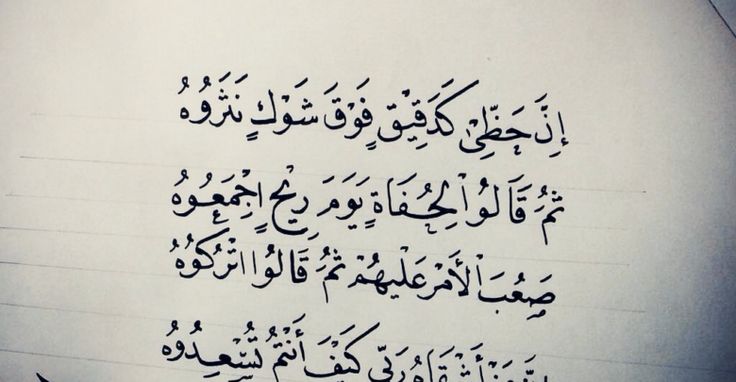 إِنَّ حَظِّيْ كَدَقِيْقٍ فَوْقَ شَوْكٍ نَثَرُوْهُ
ثُمَّ قَالُوْا لِحُفَاةٍ يَوْمَ رِيْحٍ اِجْمَعُوْهُ
صَعُبَ الْأَمْرُ عَلَيْهِمْ ثُمَّ قَالُوْا اتْرُكُوْهُ
أَشْقَاهُ رَبِّي كَيْفَ أَنْتُمْ تُسْعِدُوْهُ